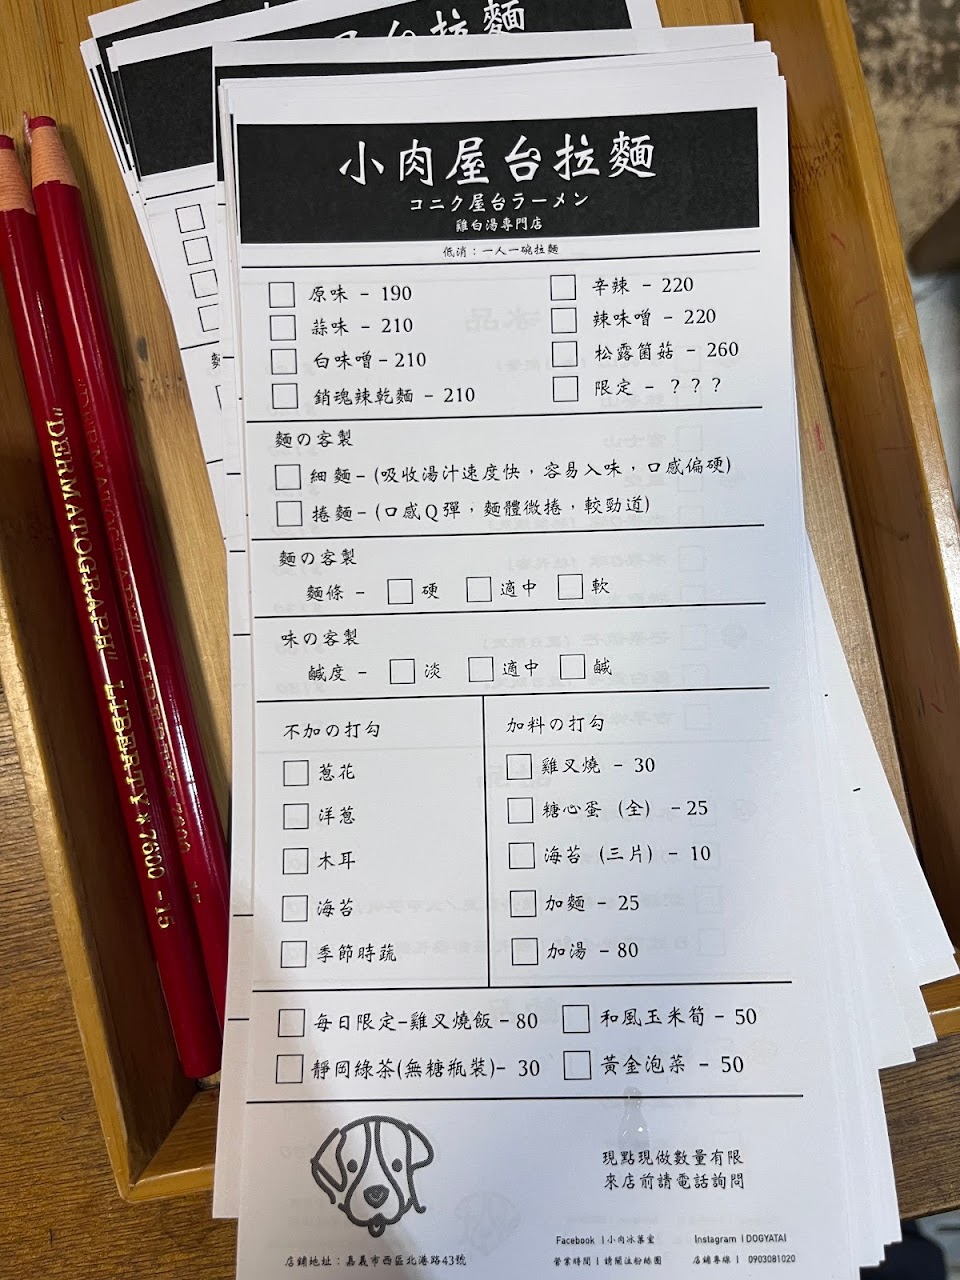 小肉屋台拉麵
コニク屋台ラーメン
雞白湯專門店
低消：一人一碗拉麵
原味 - 190
辛辣 - 220
蒜味 - 210
辣味噌 - 220
白味噌 - 210
松露菌菇 - 260
銷魂辣乾麵 - 210
限定 - ？？？
麵の客製
細麵 - (吸收湯汁速度快，容易入味，口感偏硬)
捲麵 - (口感Q彈，麵體微捲，較勁道)
麵の客製
麵條 - 硬 適中 軟
味の客製
鹹度 - 淡 適中 鹹
不加の打勾
蔥花
洋蔥
木耳
海苔
季節時蔬
加料の打勾
雞叉燒 - 30
糖心蛋 (全) - 25
海苔 (三片) - 10
加麵 - 25
加湯 - 80
每日限定-雞叉燒飯 - 80
和風玉米筍 - 50
靜岡綠茶(無糖瓶裝)- 30
黃金泡菜 - 50
現點現做數量有限
來店前請電話詢問
Facebook | 小肉冰菓室
Instagram | DOGYATAI
店鋪地址：嘉義市西區北港路43號
營業時間 | 請關注粉絲團
店鋪專線 | 0903081020
"DERMATOGRAPH" LIBERTY * 7600 - 15